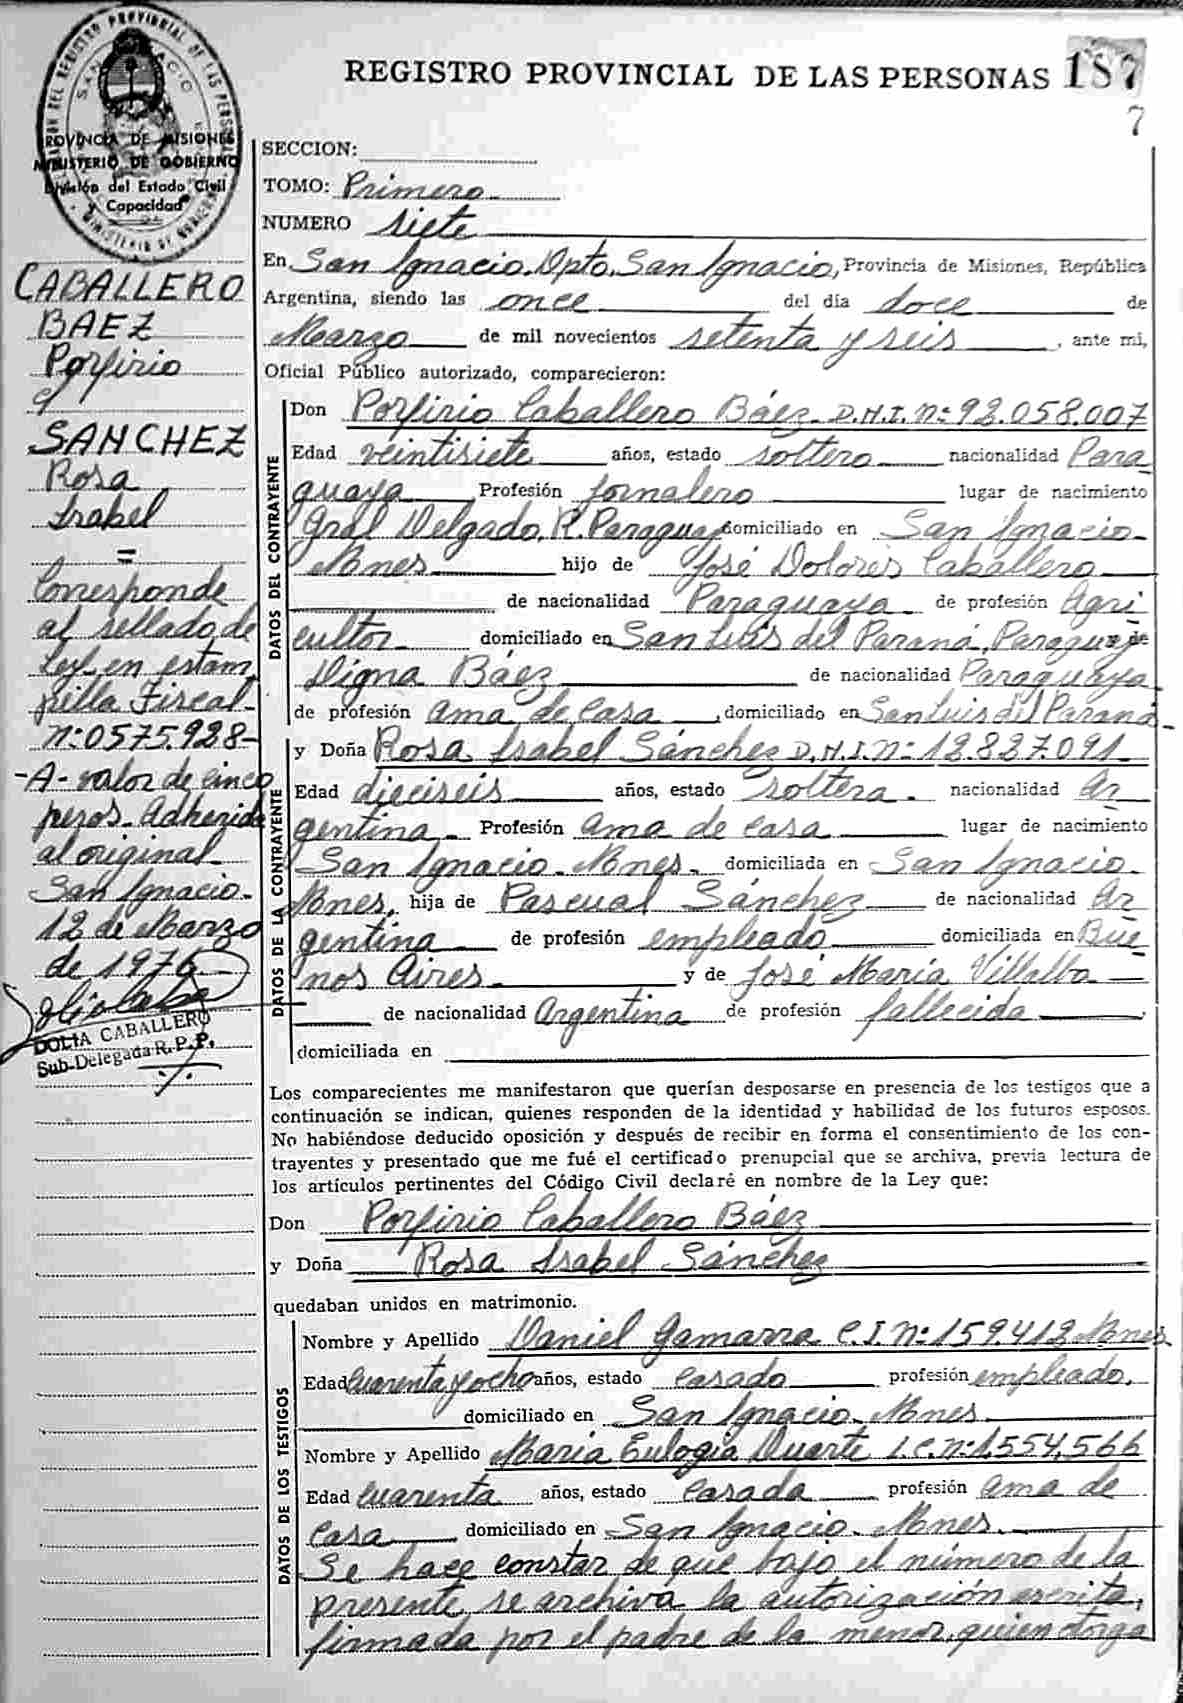 REGISTRO PROVINCIAL DE LAS PERSONAS 187
7
PROVINCIA DE MISIONES
MINISTERIO DE GOBIERNO
División del Estado Civil
y Capacidad
SECCION:
TOMO: Primero
NUMERO siete
CABALLERO
BAEZ
Porfirio
c/
SANCHEZ
Rosa
Isabel
=
Corresponde
al sellado de
Ley en estam
pilla Fiscal
n: 0575.928-
-A- valor de cinco
pesos. Adherida
al original.
San Ignacio.
12 de Marzo
de 1976
DOLIA CABALLERO
Sub-Delegada R.P.P.
En San Ignacio, Dpto. San Ignacio, Provincia de Misiones, República
Argentina, siendo las once del día doce de
Marzo de mil novecientos setenta y seis, ante mi,
Oficial Público autorizado, comparecieron:
DATOS DEL CONTRAYENTE
Don Porfirio Caballero Báez D.N.I. n: 92.058.007
Edad veintisiete años, estado soltero nacionalidad Para
guaya Profesión Jornalero lugar de nacimiento
Gral Delgado, R. Paraguay domiciliado en San Ignacio-
Mnes hijo de José Dolores Caballero
de nacionalidad Paraguaya de profesión Agri
cultor domiciliado en San Luis del Paraná, Paraguay de
Digna Báez de nacionalidad Paraguaya
de profesión ama de casa, domiciliado en San Luis del Paraná-
DATOS DE LA CONTRAYENTE
y Doña Rosa Isabel Sánchez D.N.I. n: 12.827.091
Edad dieciseis años, estado soltera. nacionalidad Ar
gentina Profesión ama de casa lugar de nacimiento
San Ignacio. Mnes. domiciliada en San Ignacio.
Mnes, hija de Pascual Sánchez de nacionalidad Ar
gentina de profesión empleado domiciliada en Bue
nos Aires. y de José María Villalba
de nacionalidad Argentina de profesión fallecida
domiciliada en
Los comparecientes me manifestaron que querían desposarse en presencia de los testigos que a
continuación se indican, quienes responden de la identidad y habilidad de los futuros esposos.
No habiéndose deducido oposición y después de recibir en forma el consentimiento de los con-
trayentes y presentado que me fué el certificado prenupcial que se archiva, previa lectura de
los artículos pertinentes del Código Civil declaré en nombre de la Ley que:
Don Porfirio Caballero Báez
y Doña Rosa Isabel Sánchez
quedaban unidos en matrimonio.
DATOS DE LOS TESTIGOS
Nombre y Apellido Daniel Gamarra C.I. n: 159.412 Mnes
Edad cuarenta y ocho años, estado casado profesión empleado.
domiciliado en San Ignacio. Mnes
Nombre y Apellido María Eulogia Duarte L.C. n: 1.554.566
Edad cuarenta años, estado casada profesión ama de
casa domiciliado en San Ignacio. Mnes.
Se hace constar de que bajo el número de la
presente, se archiva la autorización escrita,
firmada por el padre de la menor, quien otorga